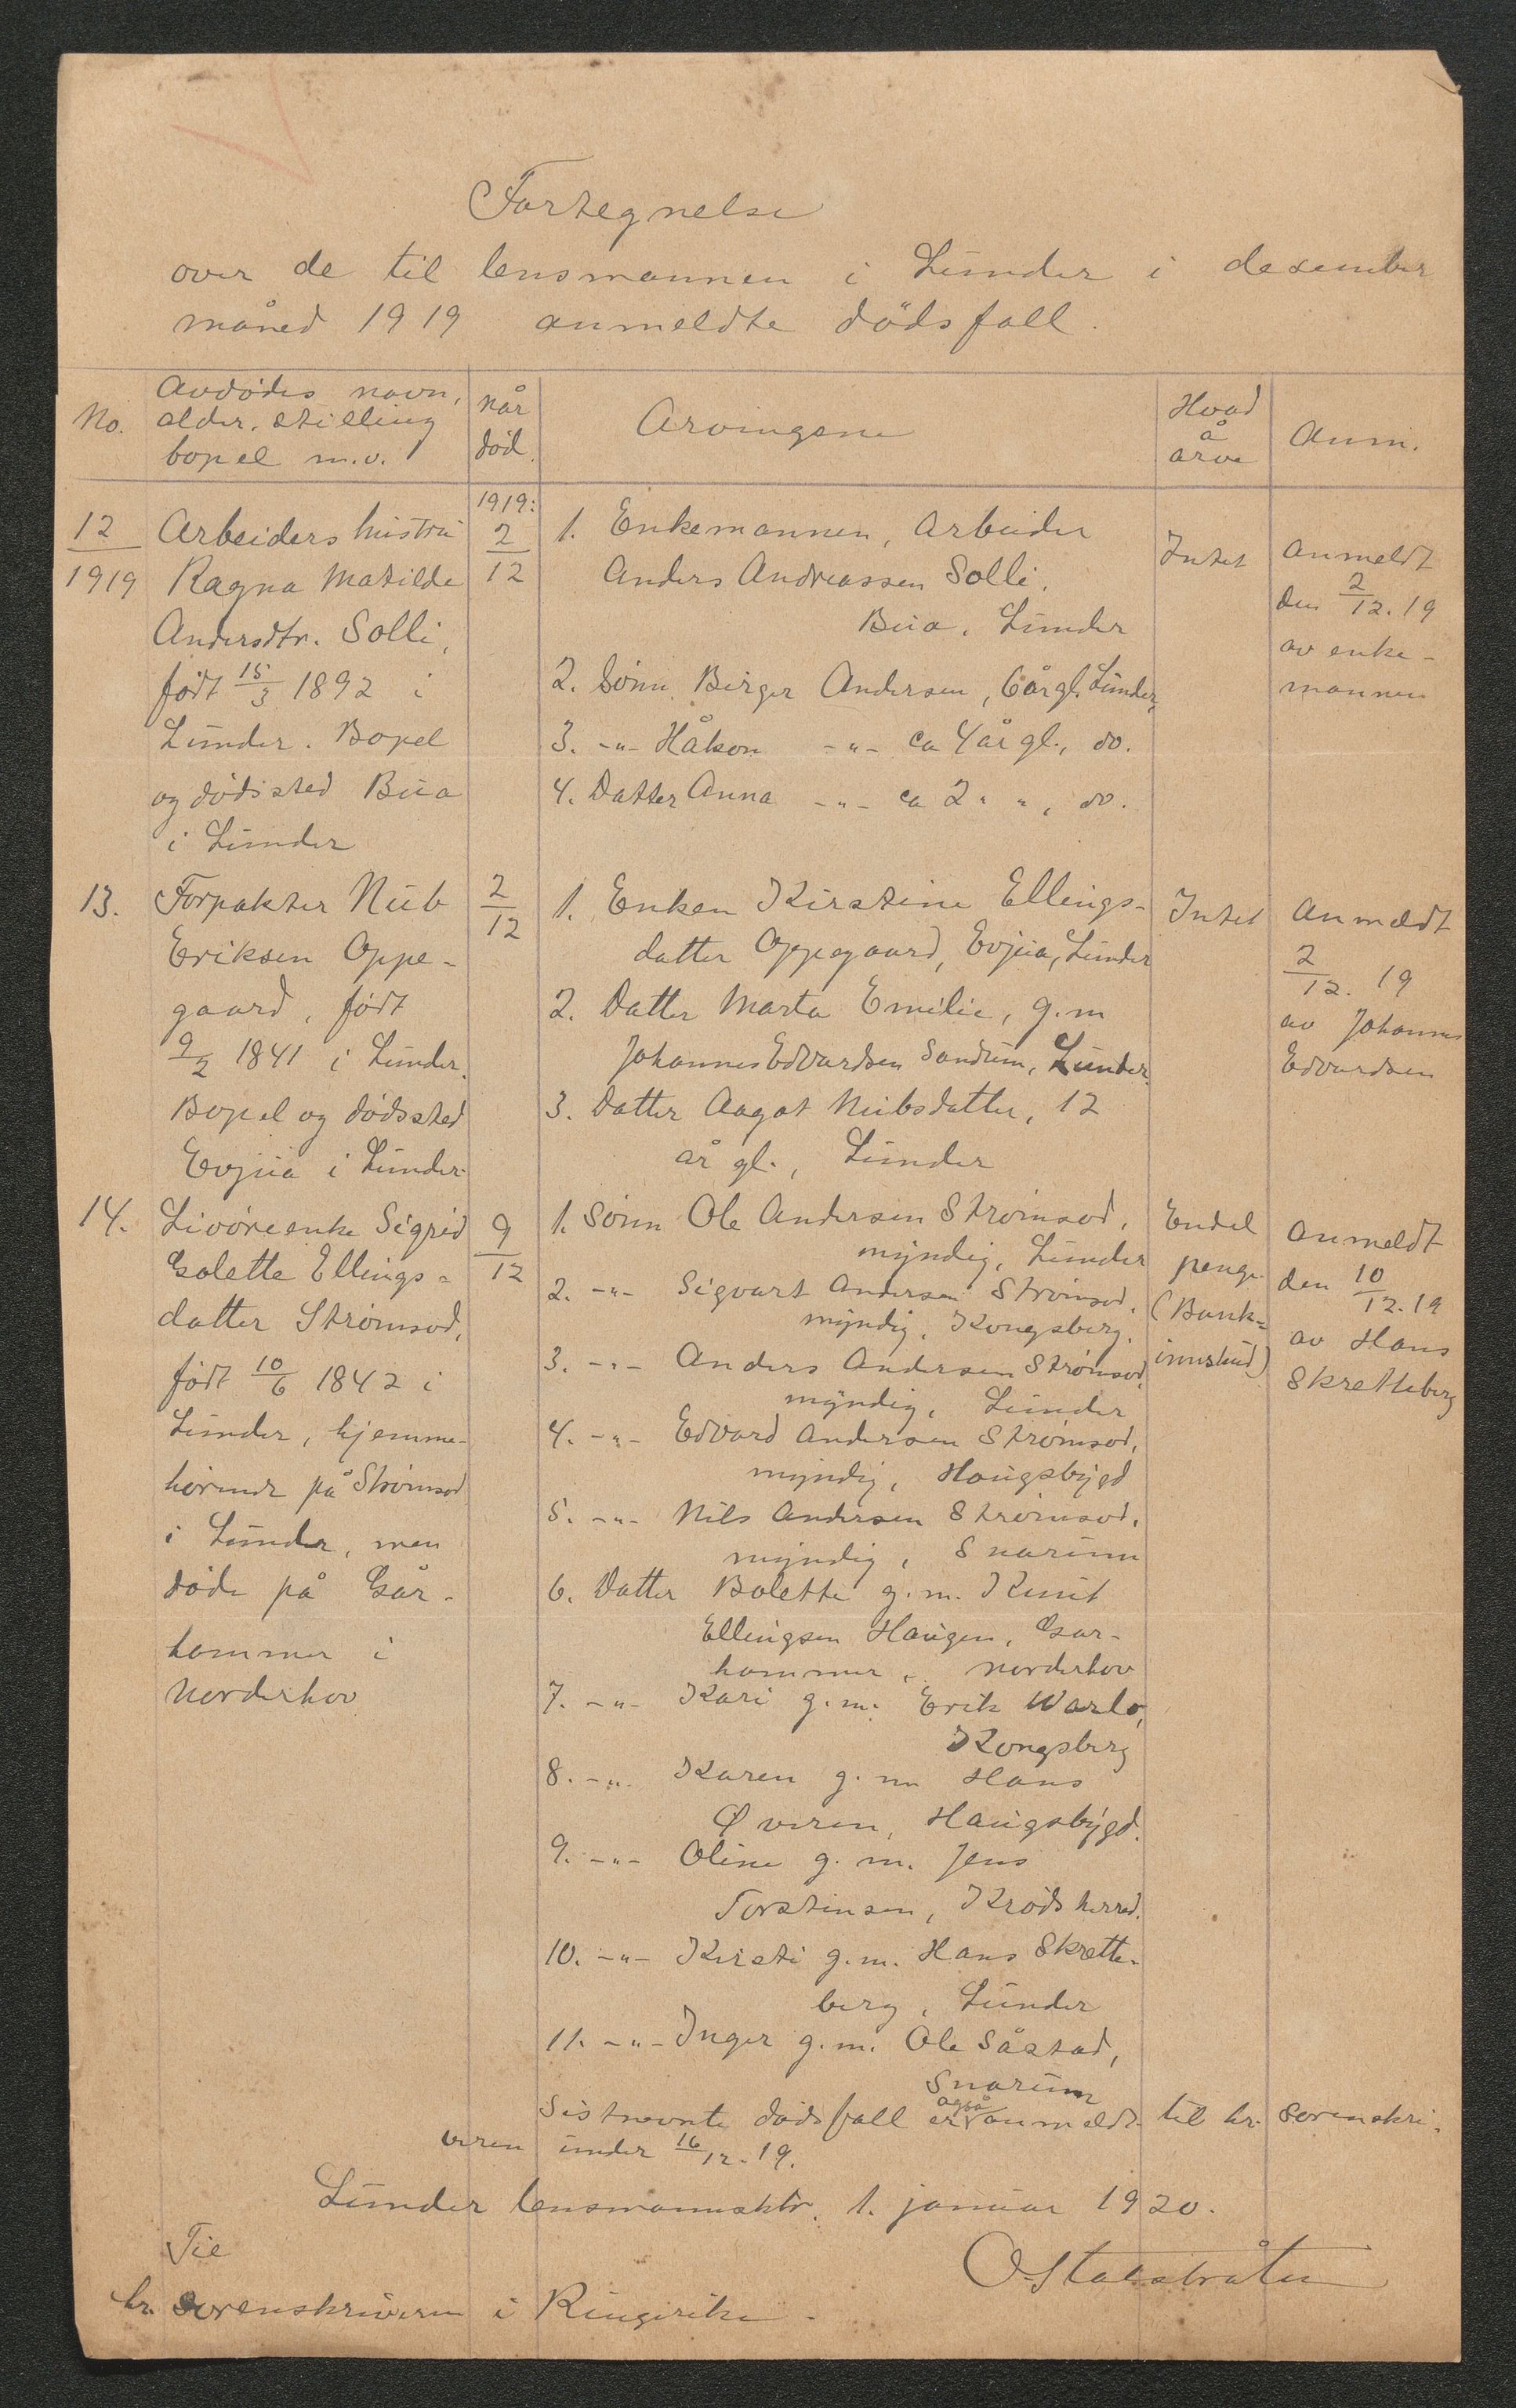 Fortegnelse
over de til lensmannen i Lunder i desember
måned 1919 anmeldte dödsfall.
No.
Avdødes navn,
alder, stilling
bopel m.v.
når
död.
Arvingene
Hvad
å
arve
Anm.
12
1919
Arbeiders hustru
Ragna Matilde
Andersdtr. Solli,
født 15/3 1892 i
Lunder. Bopel
og dödssted Bua
i Lunder
1919:
2/12
1. Enkemannen, Arbeider
Anders Andreassen Solli.
Bua, Lunder
2. Sønn Birger Andersen, 6 år gl. Lunder,
3. -"- Håkon -"- ca 4 år gl., do.
4. Datter Anna -"- ca 2 " ", do.
Intet
Anmeldt
den 2/12. 19
av enke-
mannen
13.
Forpakter Nub
Eriksen Oppe-
gaard, født
9/2 1841 i Lunder.
Bopel og dødssted
Evjua i Lunder
2/12
1. Enken Kirstine Ellings-
datter Oppegaard, Evjua, Lunder
2. Datter Marta Emilie, g.m
Johannes Edvardsen Sandum, Lunder.
3. Datter Aagot Nubsdatter, 12
år gl., Lunder
Intet
Anmeldt
2/12. 19
av Johannes
Edvardsen
14.
Livöreenke Sigrid
Golette Ellings=
datter Strømsod,
født 10/6 1842 i
Lunder, hjemme-
hörende på Strömsod
i Lunder, men
döde på Går-
hammer i
Norderhov
9/12
1. Sønn Ole Andersen Strømsod,
myndig, Lunder
2. -"- Sigvart Andersen Strömsod,
myndig, Kongsberg.
3. -"- Anders Andersen Strømsod,
myndig, Lunder
4. -"- Edvard Andersen Strømsod,
myndig, Haugsbygd
5. -"- Nils Andersen Strömsod,
myndig, Snarum
6. Datter Bolette g.m. Knut
Ellingsen Haugen, Gar-
hammer, Norderhov
7. -"- Kari g.m. Erik Warlo,
Kongsberg
8. -"- Karen g.m Hans
Øveren, Haugsbygd.
9. -"- Oline g.m. Jens
Torstensen, Krödsherred.
10. -"- Kirsti g.m. Hans Skrette-
berg, Lunder
11. -"- Inger g.m. Ole Såstad,
Snarum
Endel
penge
(Bank=
innskud)
Anmeldt
den 10/12. 19
av Hans
Skretteberg
Sistnevnte dödsfall er også anmeldt til hr. sorenskri-
veren under 16/12. 19.
Lunder lensmannsktr. 1. januar 1920.
O. Stalsbråten
Til
hr. sorenskriveren i Ringerike.